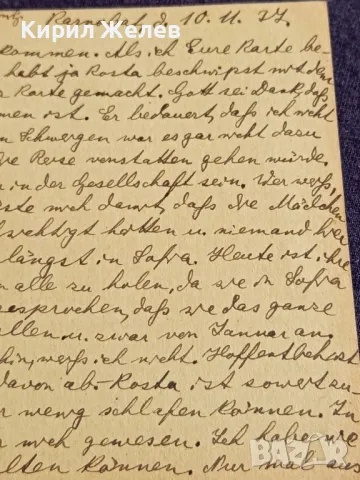 Кирил Желев
Karnobat, d. 10. 11. 37.
kommen. Als ich Eure Karte be-
habt ja Kosta beschwipst mit den
Karte gemacht. Gott sei Dank, daß
men ist. Er bedauert, daß ich nicht
Schmerzen war es gar nicht dazu
Reise vonstatten gehen würde.
in der Gesellschaft sein. Wer weiß,
ste mich damit, daß die Mädchen
hatten u. niemand hier
längst in Sofia. Heute ist ihre
n alle zu holen, da sie in Sofia
gesprochen, daß sie das ganze
ellen u. zwar von Januar an.
hin, weiß ich nicht. Hoffentl. hast
davon ab. Kosta ist soweit zu-
r wenig schlafen können. In
r mich gewesen. Ich habe sie
alten können. Nur mal aus
BAZAR